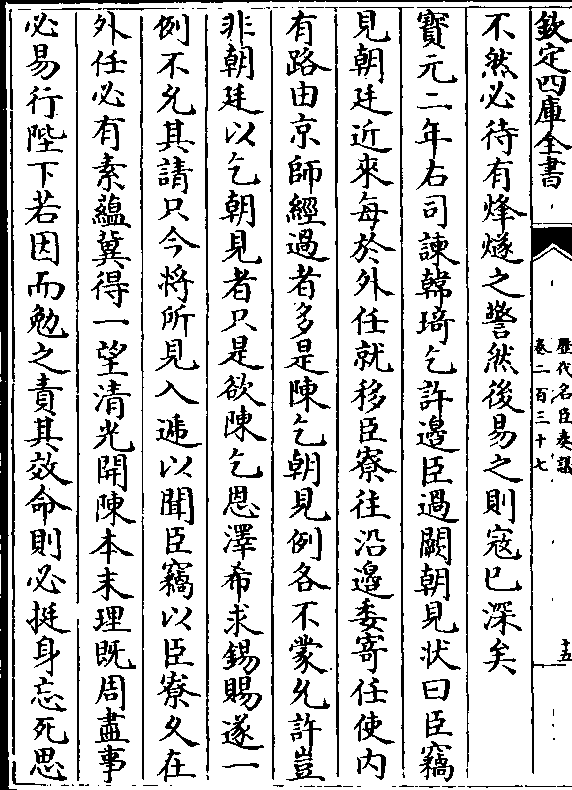 欽定四庫全書
歷代名臣奏議
卷二百三十七
十五
不然必待有烽燧之警然後易之則寇已深矣
寶元二年右司諫韓琦乞許邊臣過闕朝見狀曰臣竊
見朝廷近來每於外任就移臣寮往沿邊委寄任使内
有路由京師經過者多是陳乞朝見例各不蒙允許豈
非朝廷以乞朝見者只是欲陳乞恩澤希求錫賜遂一
例不允其請只今將所見入遞以聞臣竊以臣寮久在
外任必有素蘊冀得一望清光開陳本末理既周盡事
必易行陛下若因而勉之責其效命則必挺身忘死思